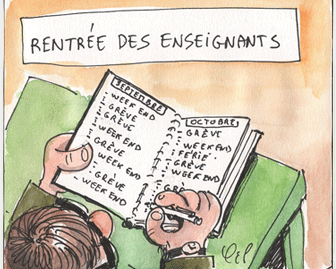 RENTRÉE DES ENSEIGNANTS
SEPTEMBRE
WEEK END
GRÈVE
GRÈVE
WEEK END
GRÈVE
WEEK END
GRÈVE
WEEK END
OCTOBRE
GRÈVE
WEEK END
FÉRIÉ
GRÈVE
WEEK END
GRÈ